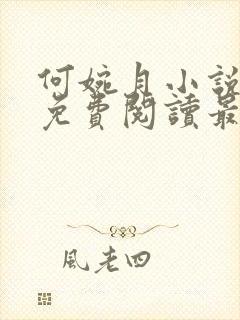 何婉月小說
免費閱讀最
風老四